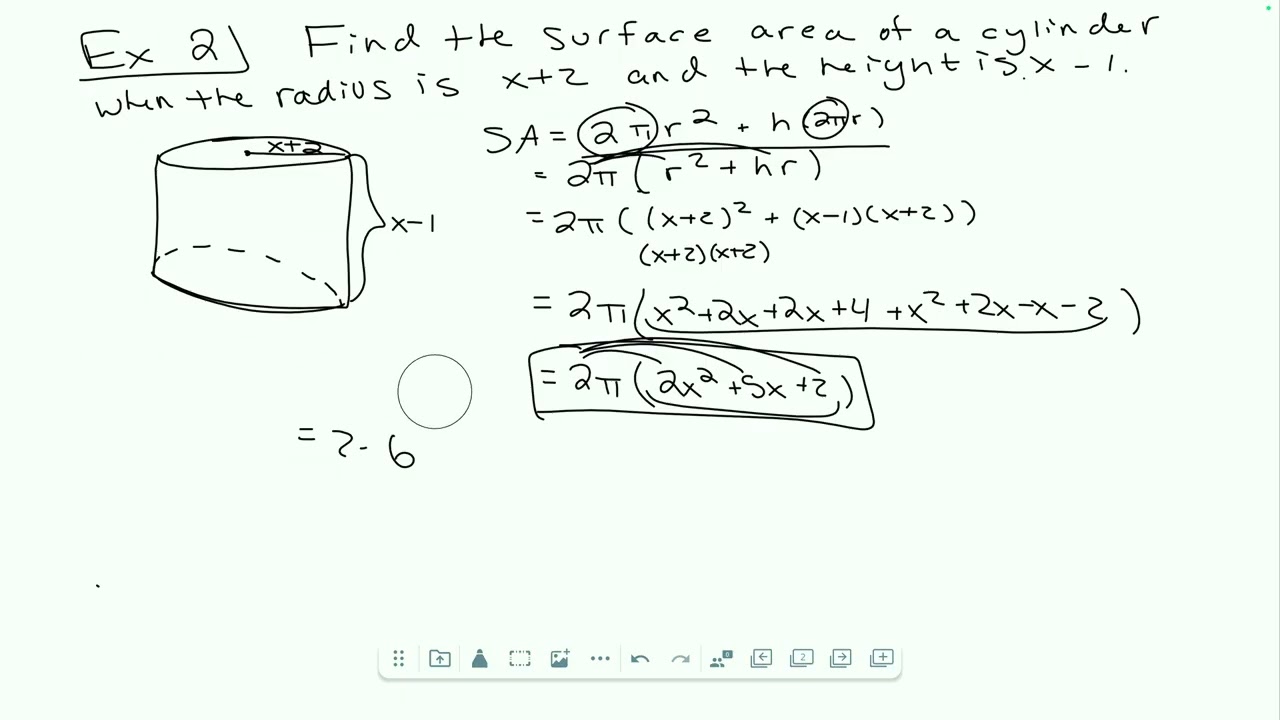 Ex 2) Find the surface area of a cylinder
when the radius is x+2 and the height is x-1.
x+2
x-1
SA = 2π r² + h(2πr)
= 2π(r² + hr)
= 2π((x+2)² + (x-1)(x+2))
(x+2)(x+2)
= 2π(x²+2x+2x+4+x²+2x-x-2)
= 2π(2x²+5x+2)
= 2· 6
2